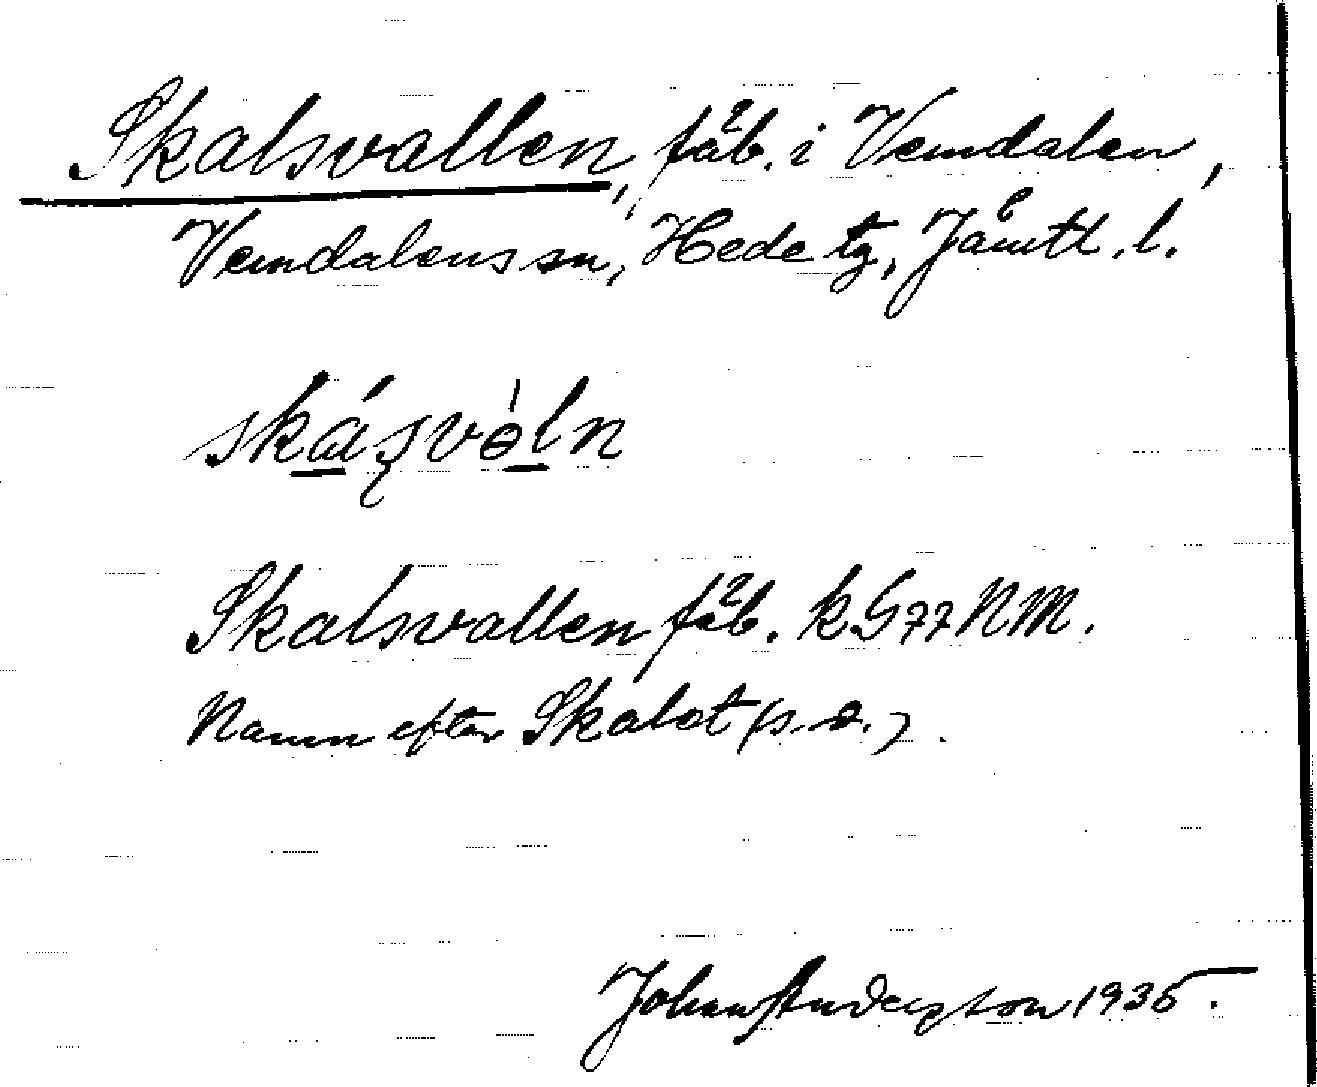 Skalsvallen, fäb. i Vemdalen,
Vemdalens sn, Hede tg, Jämtl. l.
Skalsvallen fäb. k G77NM.
Namn efter Skalet (s. d.).
Johan Anderson 1935.